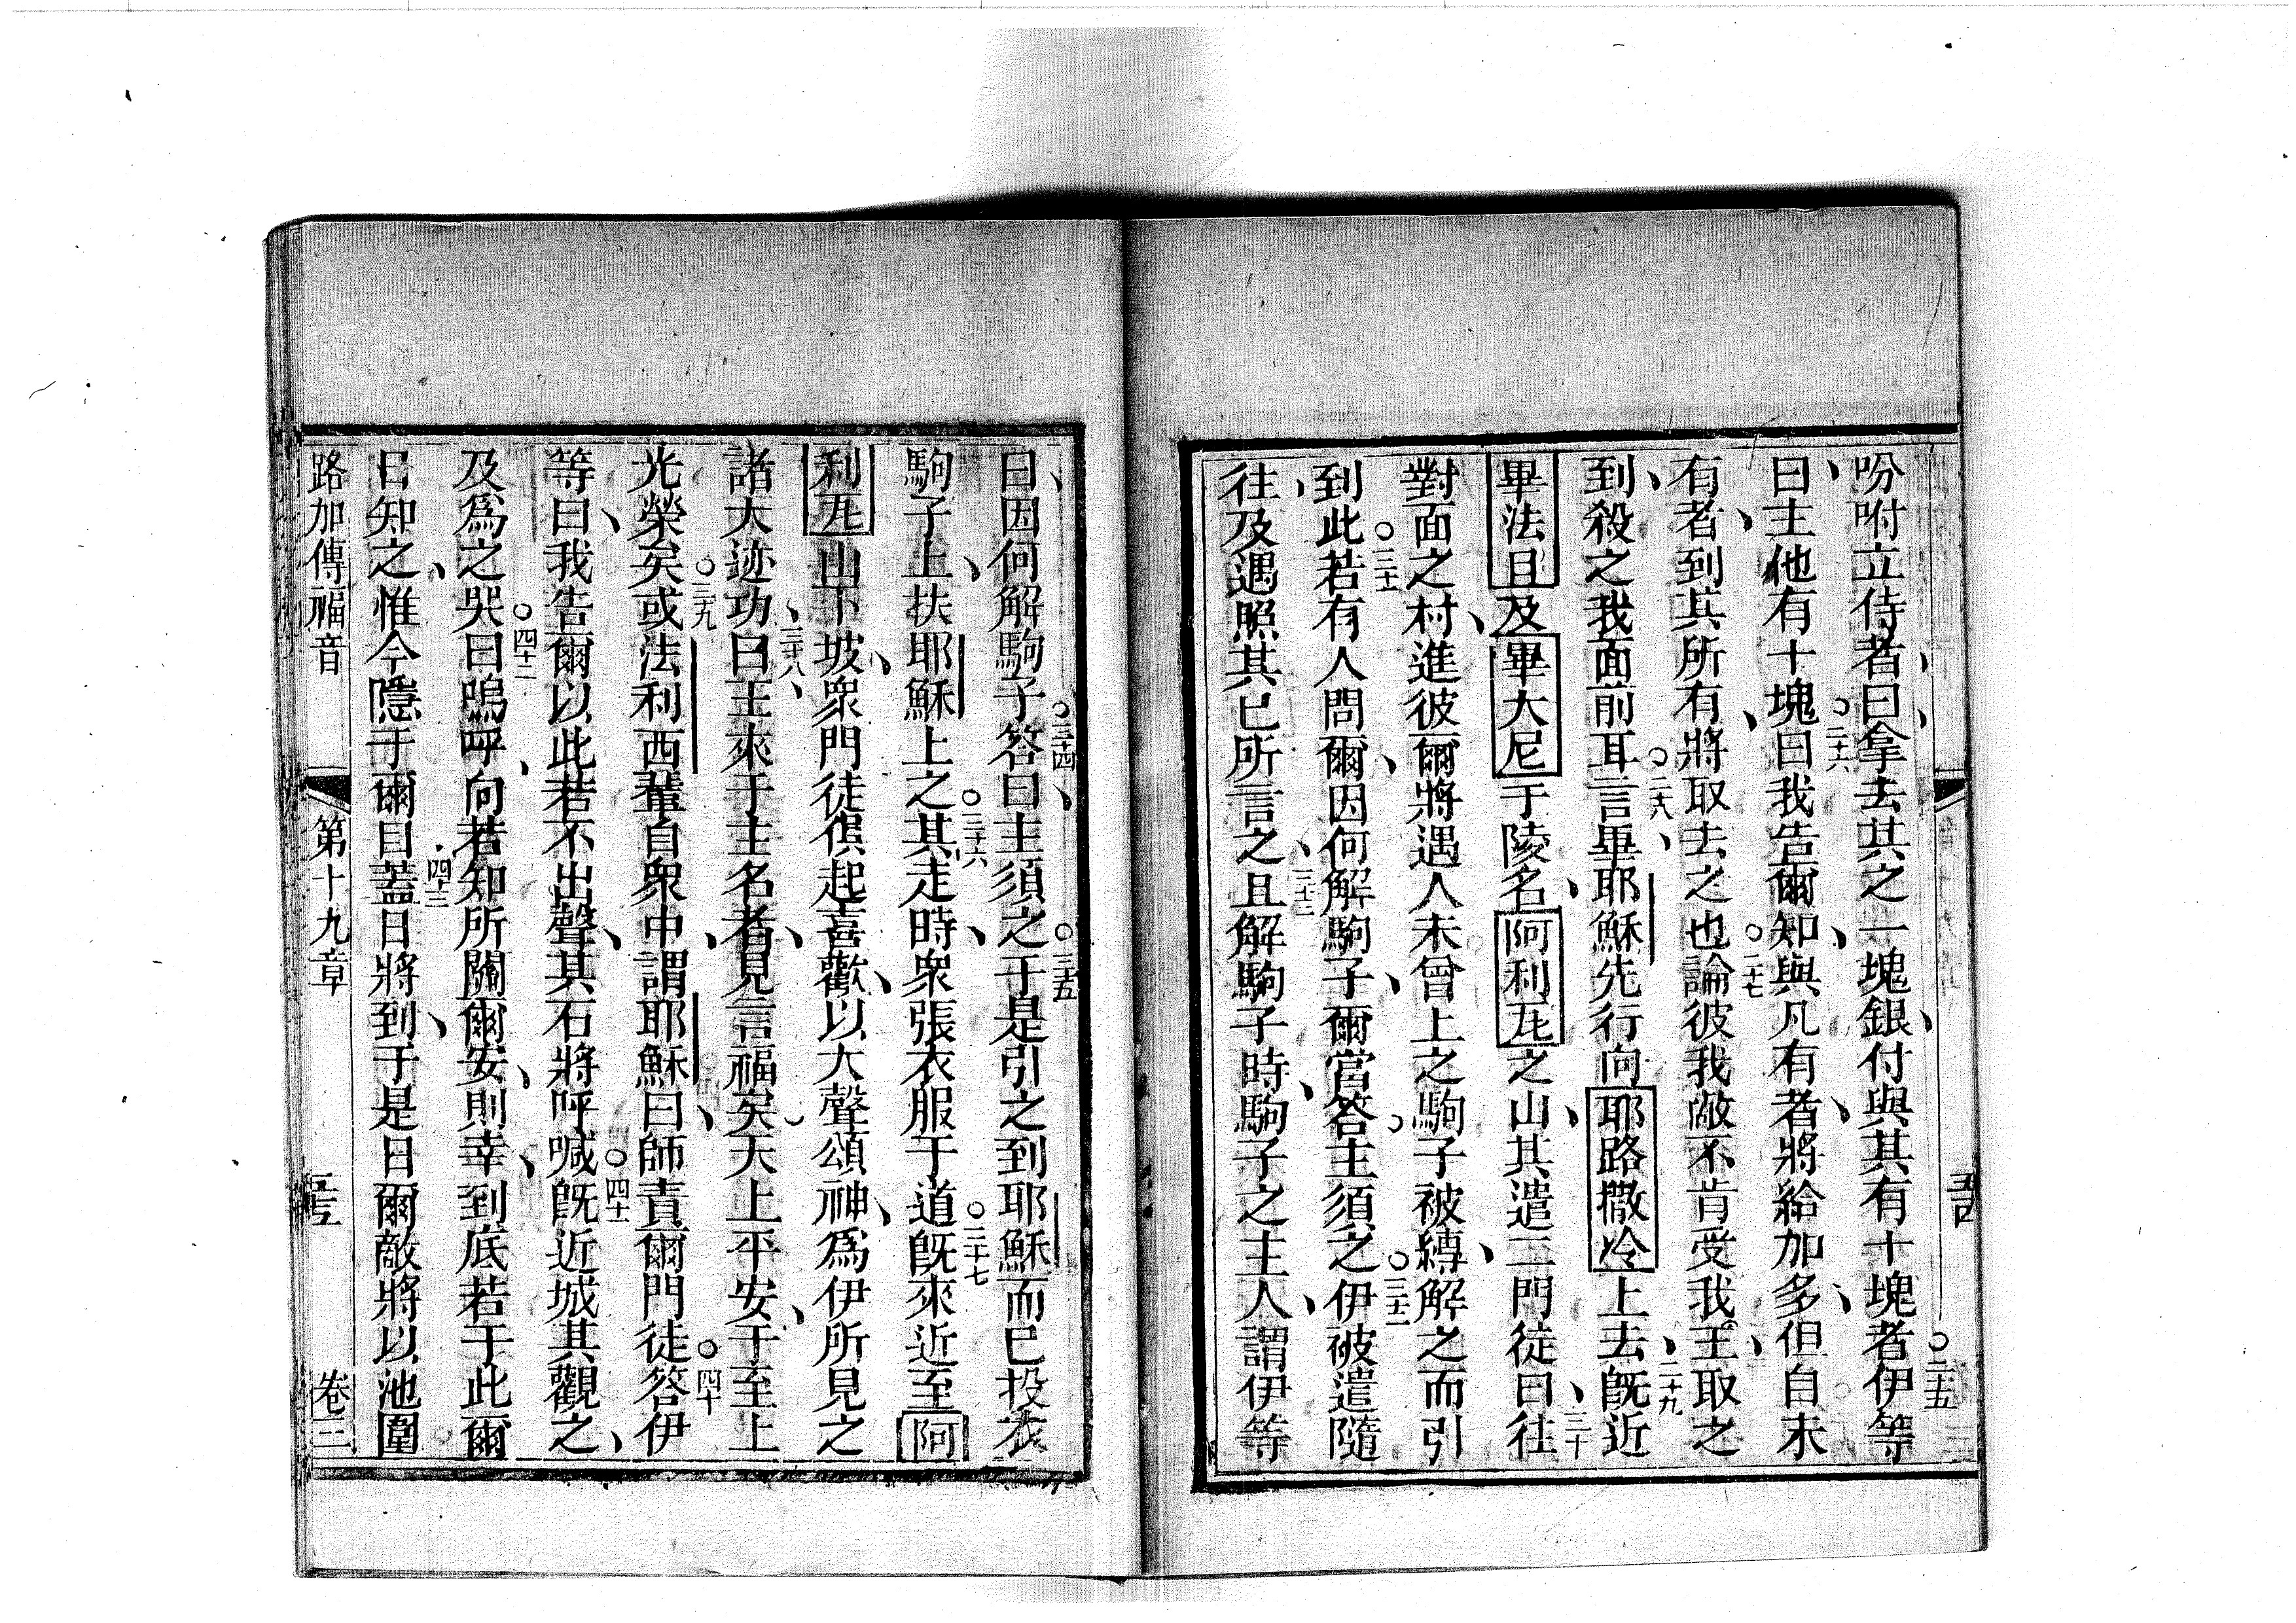 吩咐立侍者、曰、拿去其之一塊銀、付與其有十塊者○二十五伊等
曰、主他有十塊○二十六曰我告爾知、與凡有者、將給加多、但自未
有者、到其所有、將取去之也○二十七論彼我敵不肯受我王、取之
到、殺之我面前耳○二十八言畢、耶穌先行向耶路撒冷上去、二十九旣近
畢法且及畢大尼于陵名、阿利瓦之山、其遣二門徒曰、三十往
對面之村、進彼爾將遇人未曾上之駒子被縛、解之而引
到此○三十一若有人問爾、因何解駒子、爾當答主須之○三十二伊被遣隨
往、及遇照其已所言之、三十三且解駒子時、駒子之主人、謂伊等
曰、因何解駒子○三十四答曰、主須之○三十五于是引之到耶穌而已投衣
駒子上、扶耶穌上之○三十六其走時、衆張衣服于道○三十七旣來近至阿
利瓦山下坡、衆門徒俱起喜歡、以大聲頌神、爲伊所見之
諸大迹功、三十八曰、王來于主名者、見言福矣、天上平安、于至上
光榮矣○三十九或法利西輩自衆中、謂耶穌曰、師責爾門徒○四十答伊
等曰、我告爾以此若不出聲、其石將呼喊○四十一旣近城其觀之、
及爲之哭○四十二曰嗚呼、向若知所關爾安、則幸、到底若于此爾
日知之、惟今隱于爾目○四十三蓋日將到、于是日爾敵將以池圍
路加傳福音 第十九章 卷三